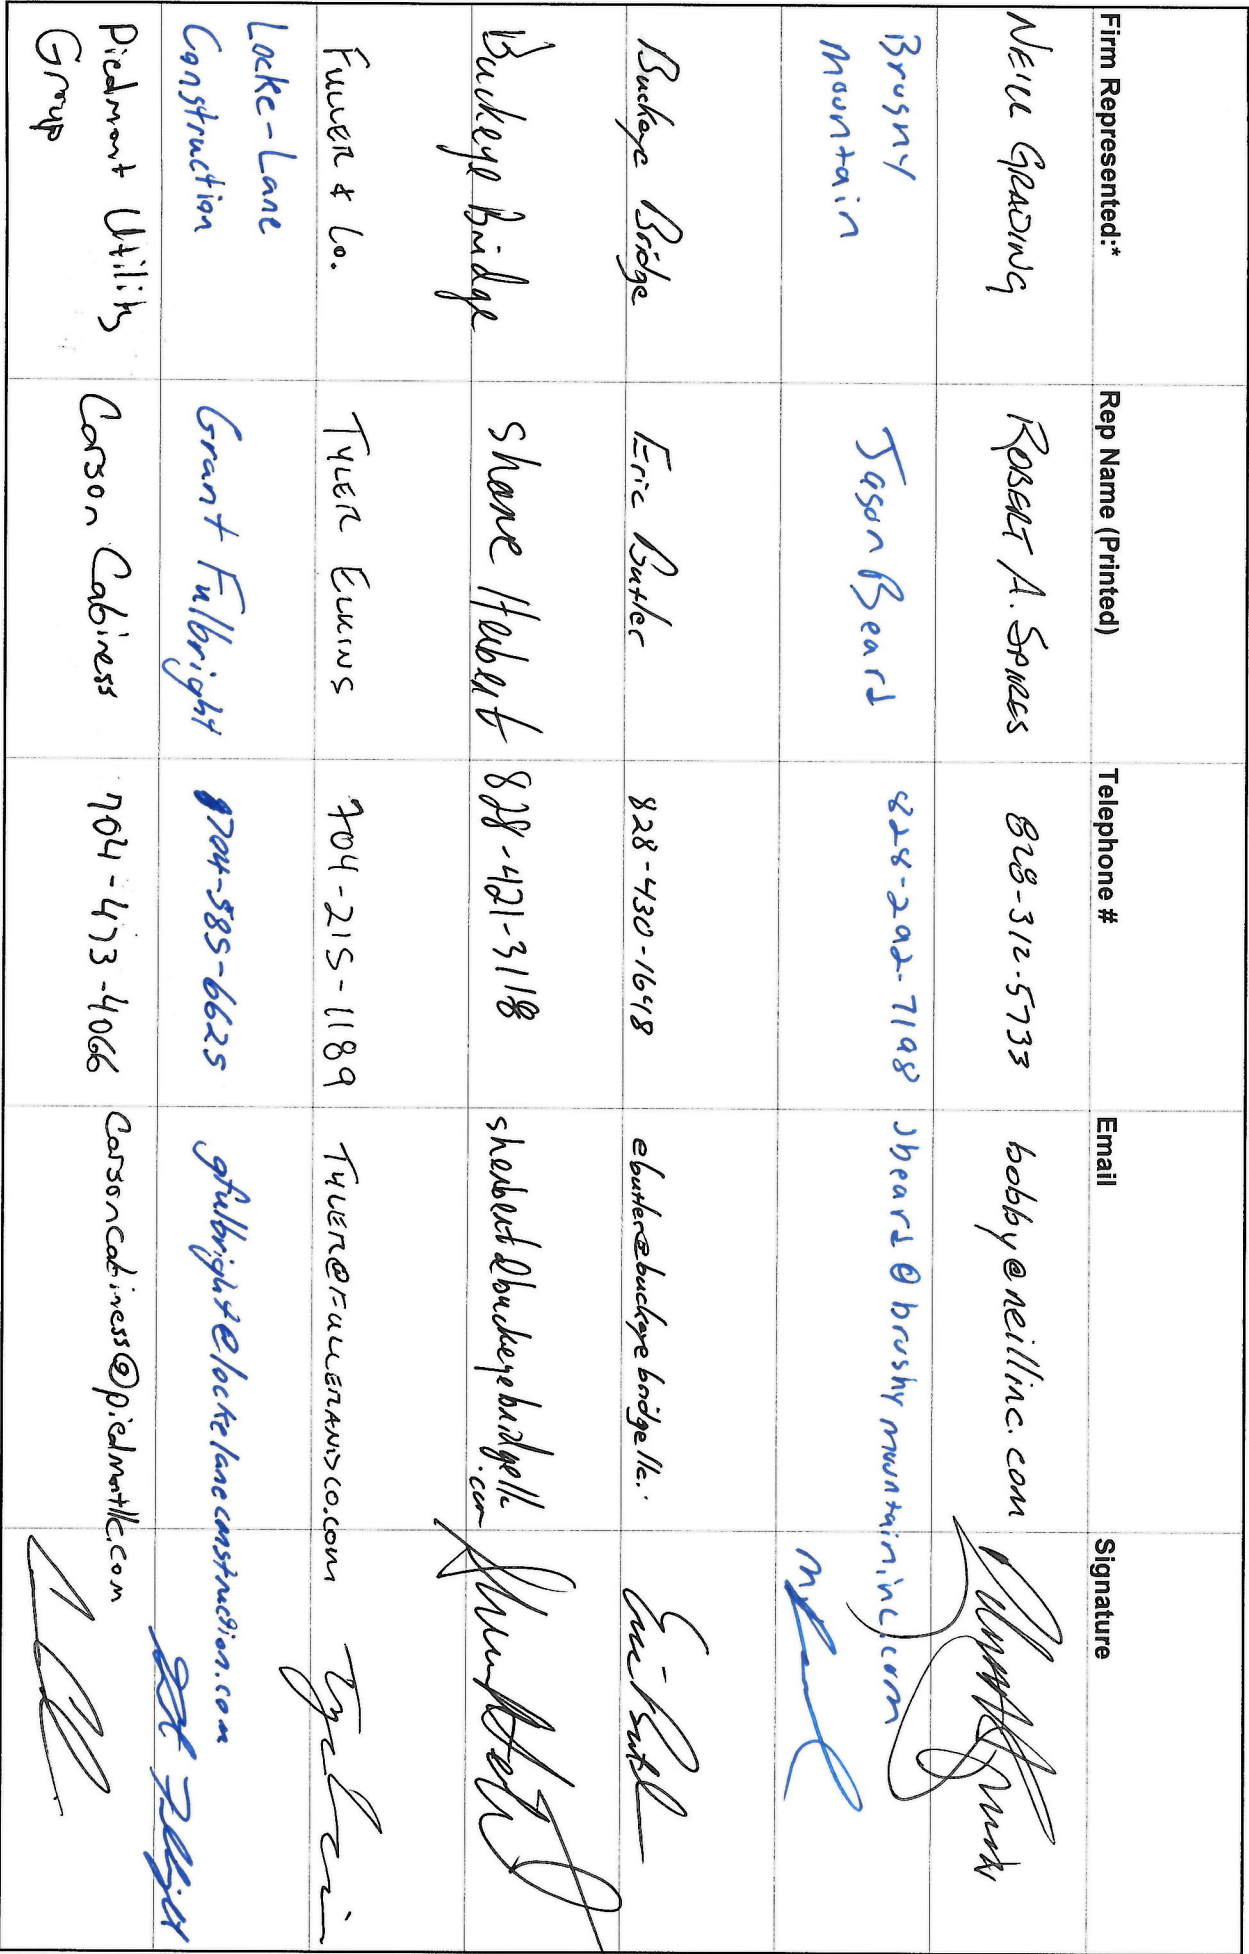 Firm Represented:* Rep Name (Printed) Telephone # Email Signature
NEILL GRADING ROBERT A. SPIRES 828-312-5733 bobby@neillinc.com
Brushy Jason Beard 828-292-7198 Jbeard@brushymountaininc.com
mountain
Buckeye Bridge Eric Butler 828-430-1648 ebutler@buckeyebridgellc.
Buckeye Bridge Shane Herbert 828-421-3118 sherbert@buckeyebridgellc
.com
FULLER & Co. TYLER ELKINS 704-215-1189 TYLER@FULLERANDCO.COM
Locke-Lane Grant Fulbright 704-585-6625 gfulbright@lockelaneconstruction.com
Construction
Piedmont Utility Carson Cabiness 704-473-4066 Carsoncabiness@piedmontllc.com
Group